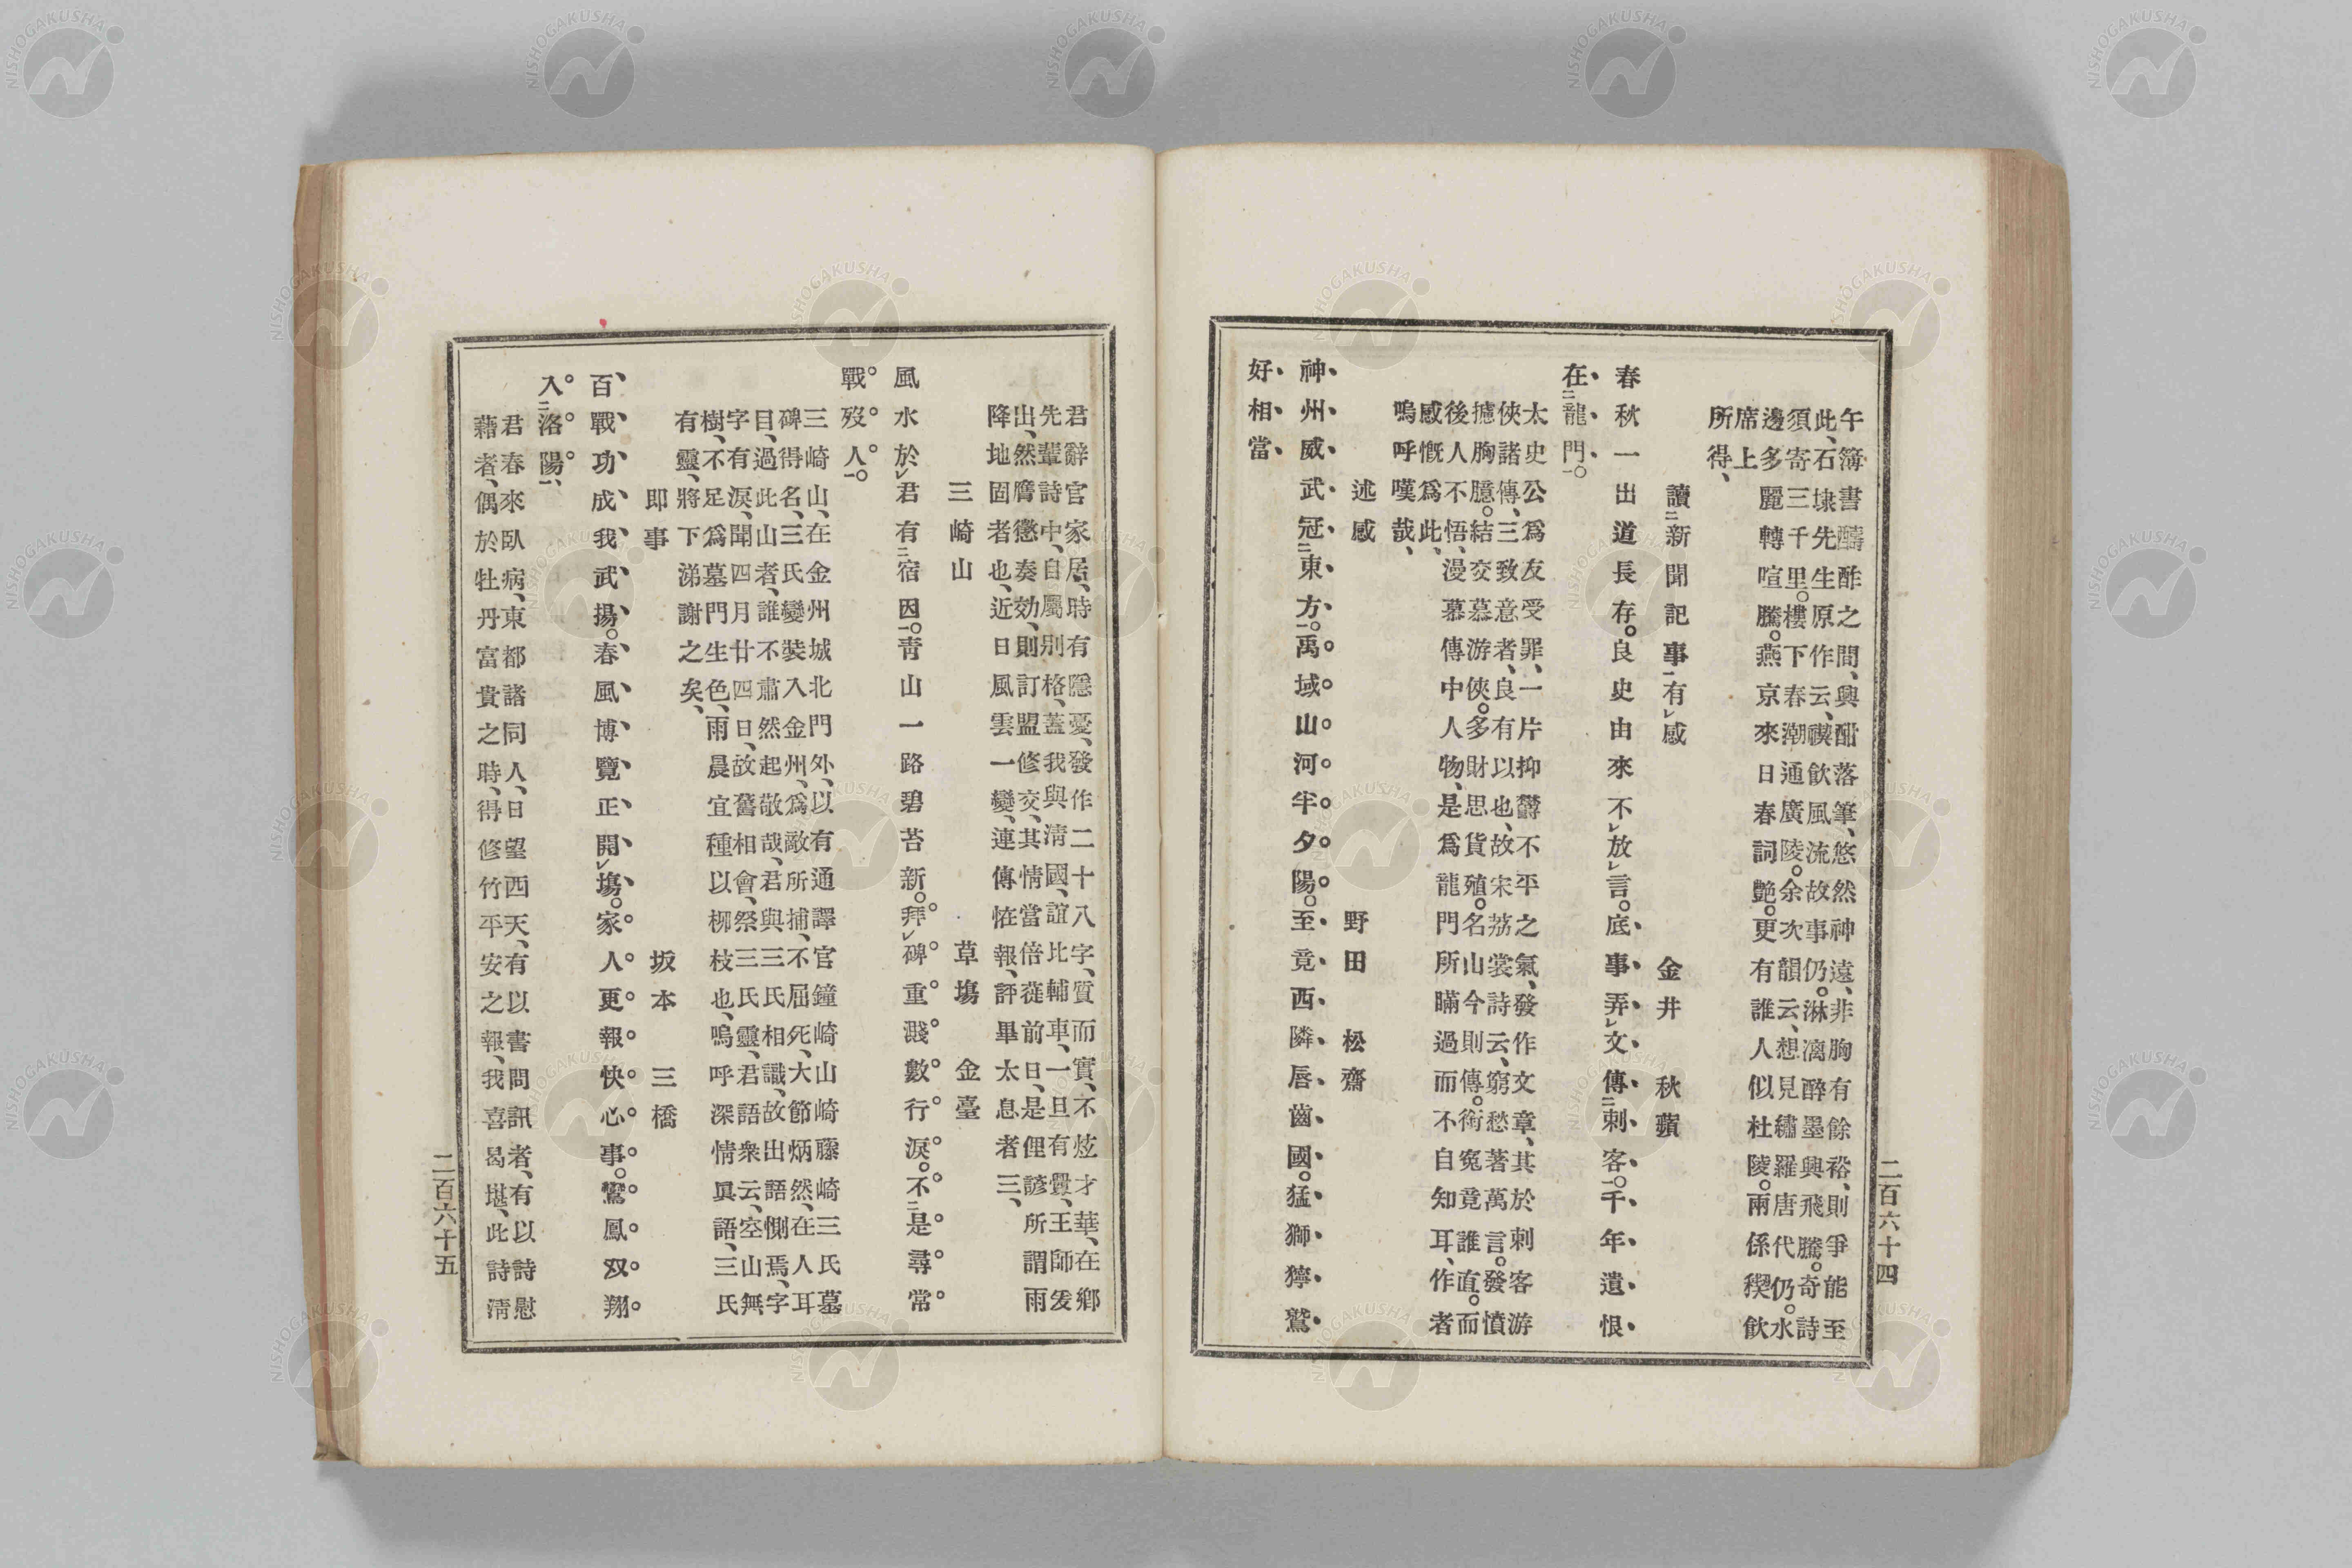 午簿書醻酢之間、興酣落筆、悠然神遠、非胸有餘裕、則爭能至
此、石埭先生原作云、禊飲風流故事仍。淋漓醉墨興飛騰。奇詩
須寄三千里。樓下春潮通廣陵。余次韻云、想見繡羅唐代仍。水
邊多麗轉喧騰。燕京來日春詞艶。更有誰人似杜陵。兩係稧飲
席上
所得、
讀二新聞記事一有レ感 金井 秋蘋
春秋一出道長存。良史由來不レ放レ言。底事弄レ文傳二刺客一。千年遺恨
在二龍門一。
太史公爲友受罪、一片抑欝不平之氣、發作文章、其於刺客游
俠諸傳、三致意者、良有以也、故宋茘裳詩云、窮愁著萬言。發憤
攄胸臆。結交慕游俠。多財思貨殖。名山今則傳。衔寃竟誰直。而
後人不悟、漫慕傳中人物、是爲龍門所瞞過而不自知耳、作者
感慨爲此、
嗚呼嘆哉、
述感 野田 松齋
神州威武冠二東方一。禹域山河半夕陽。至竟西隣唇齒國。猛獅獰鷲
好相當。
二百六十四
君辭官家居、時有隱憂、發作二十八字、質而實、不炫才華、在鄉
先輩詩中、自屬別格、蓋我與淸國、誼比輔車、一旦有釁、王師爰
出、然膺懲奏効、則訂盟修交、其情當倍蓰前日、是俚諺所謂雨
降地固者也、近日風雲一變、連傳恠報、評畢太息者三、
三崎山 草塲 金臺
風水於レ君有二宿因一。靑山一路碧苔新。拜レ碑重濺數行淚。不二是尋常
戰歿人一。
三崎山、在金州城北門外、以有通譯官鐘崎山崎藤崎三氏墓
碑得名、三氏變裝入金州、爲敵所捕、不屈死、大節炳然、在人耳
目、過此山者、誰不肅然起敬哉、君與三氏相識、故出語惻焉、字
字有淚、聞四月廿四日、故舊相會、祭三氏靈、君語衆云、空山無
樹、不足爲墓門生色、雨晨宜種以柳枝也、嗚呼深情眞語、三氏
有靈、將下涕謝之矣、
即事 坂本 三橋
百戰功成我武揚。春風博覽正開レ塲。家人更報快心事。鸞鳳双翔
入二洛陽一。
君春來臥病、東都諸同人、日望西天、有以書問訊者、有以詩慰
藉者、偶於牡丹富貴之時、得修竹平安之報、我喜曷堪、此詩淸
二百六十五